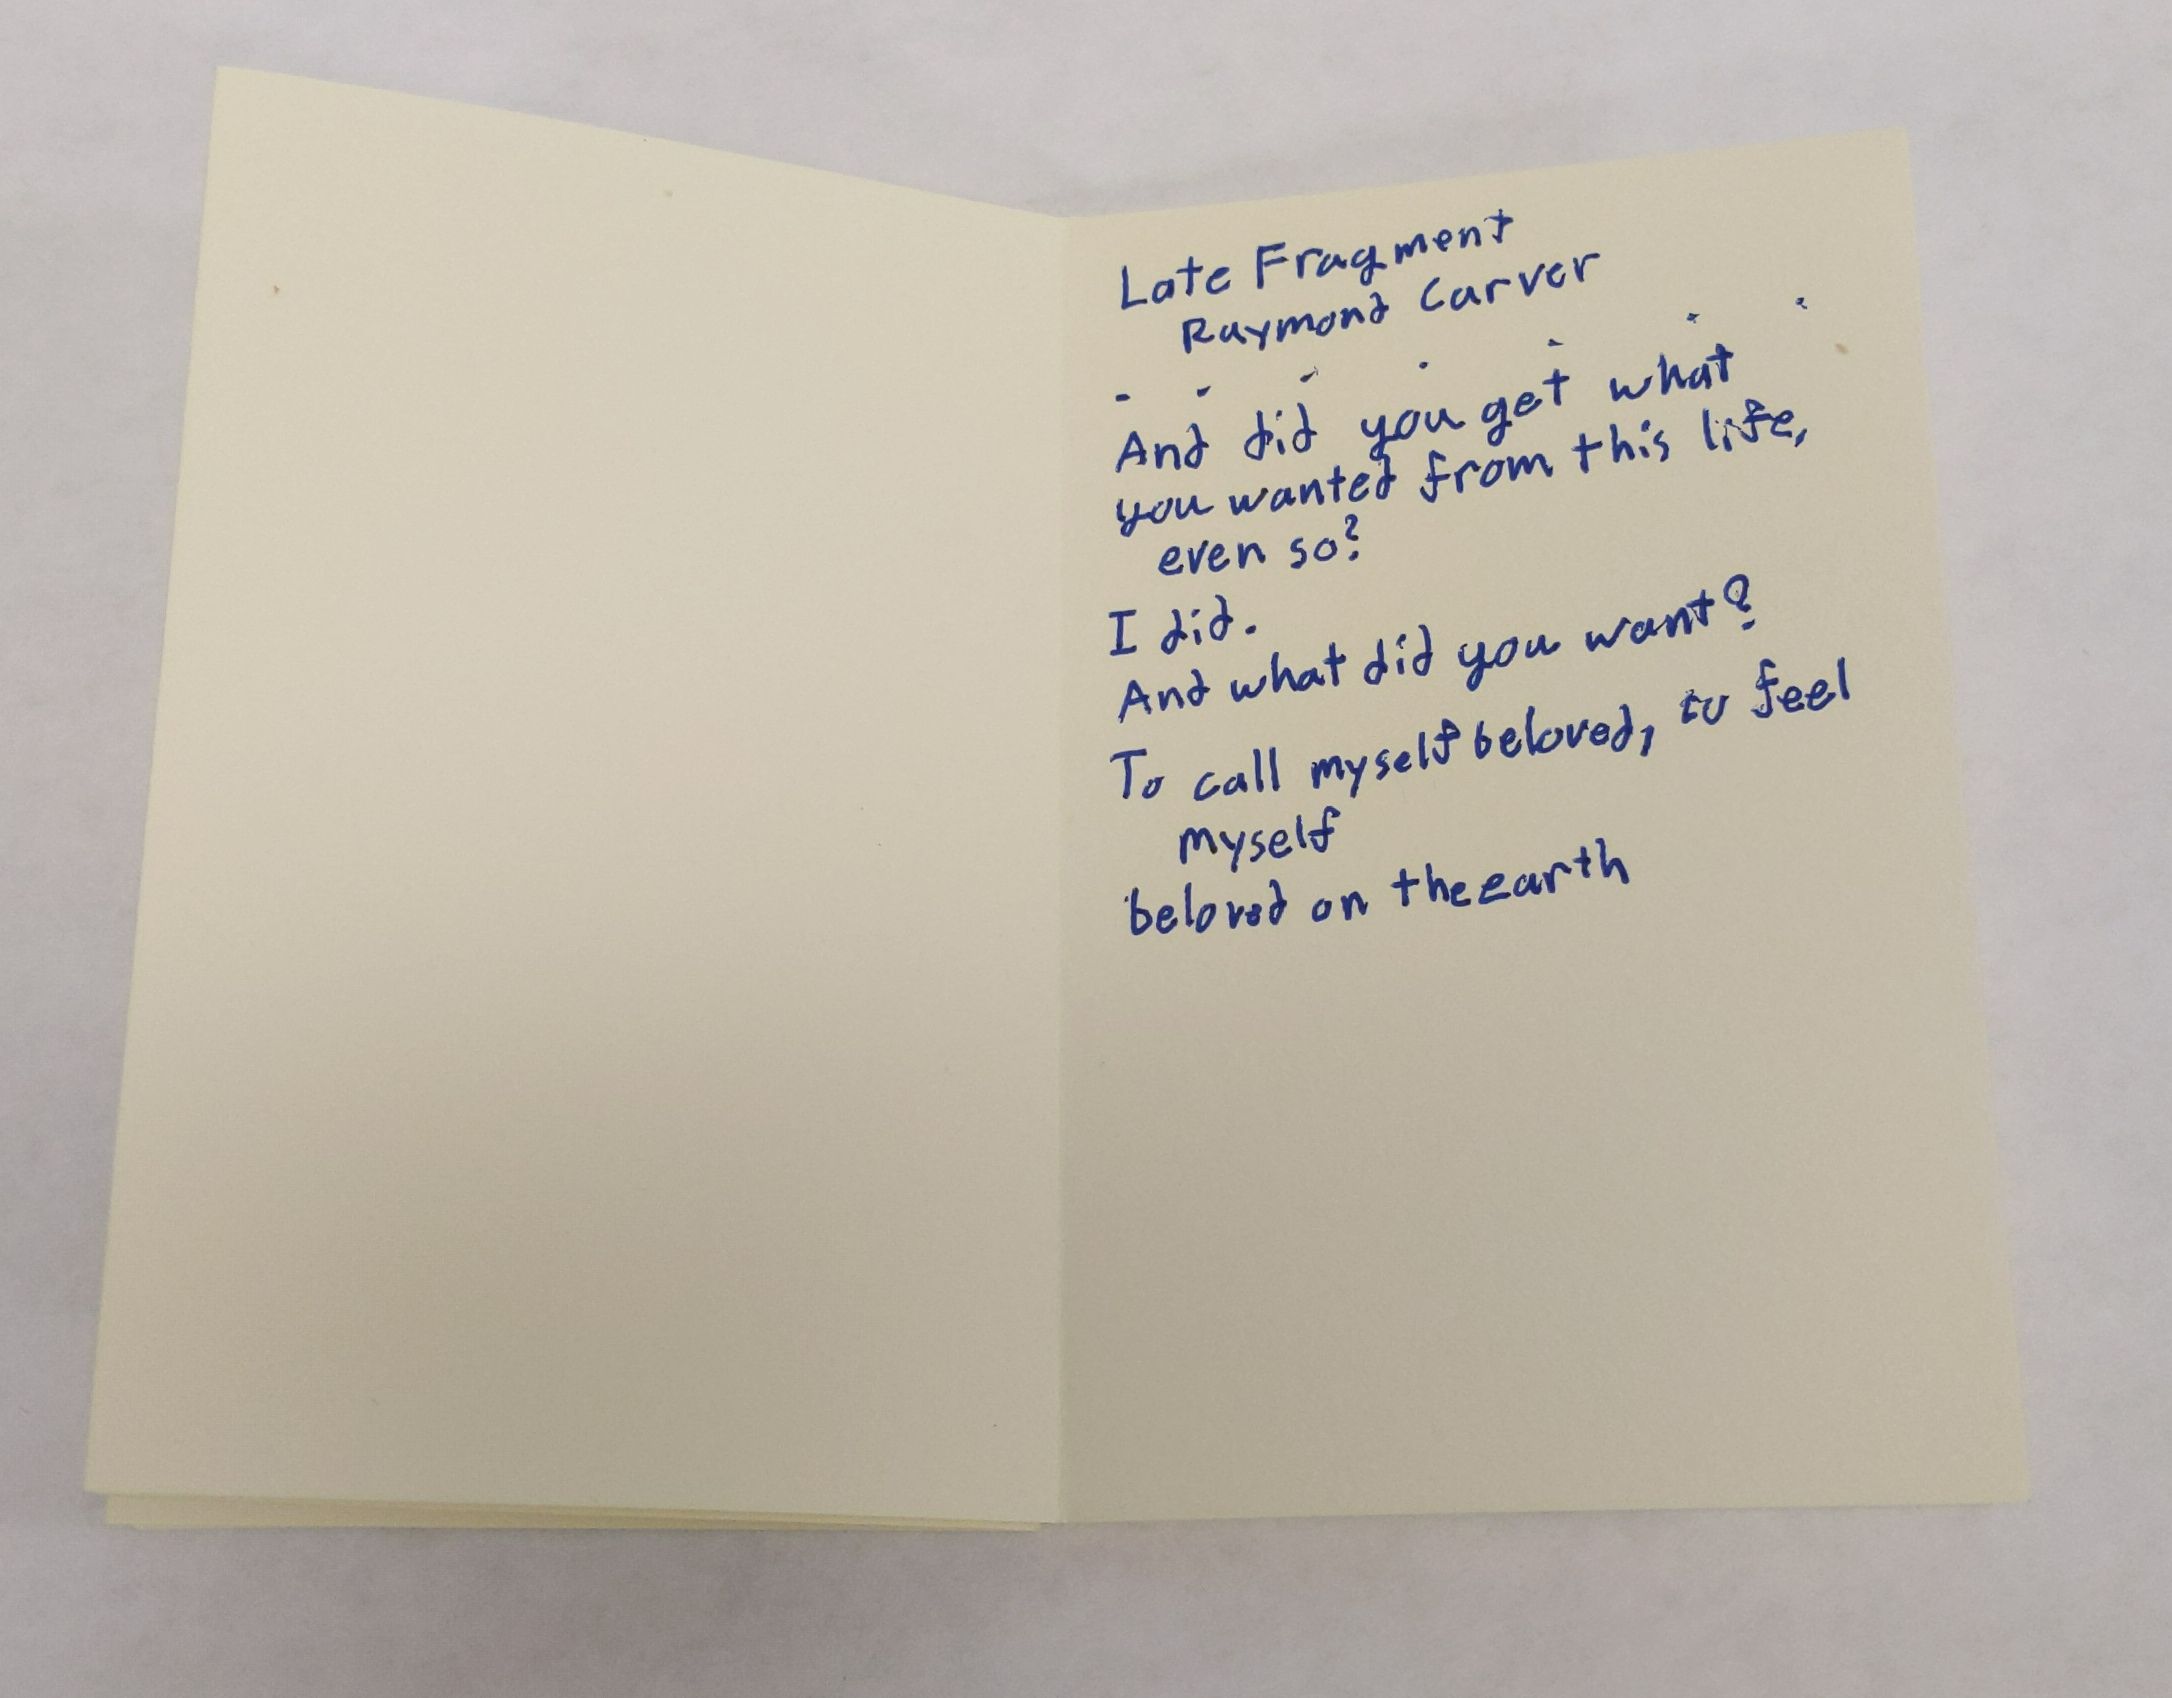 Late Fragment
Raymond Carver
- - - . - . .
And did you get what
you wanted from this life,
even so?
I did.
And what did you want?
To call myself beloved, to feel
myself
beloved on the earth